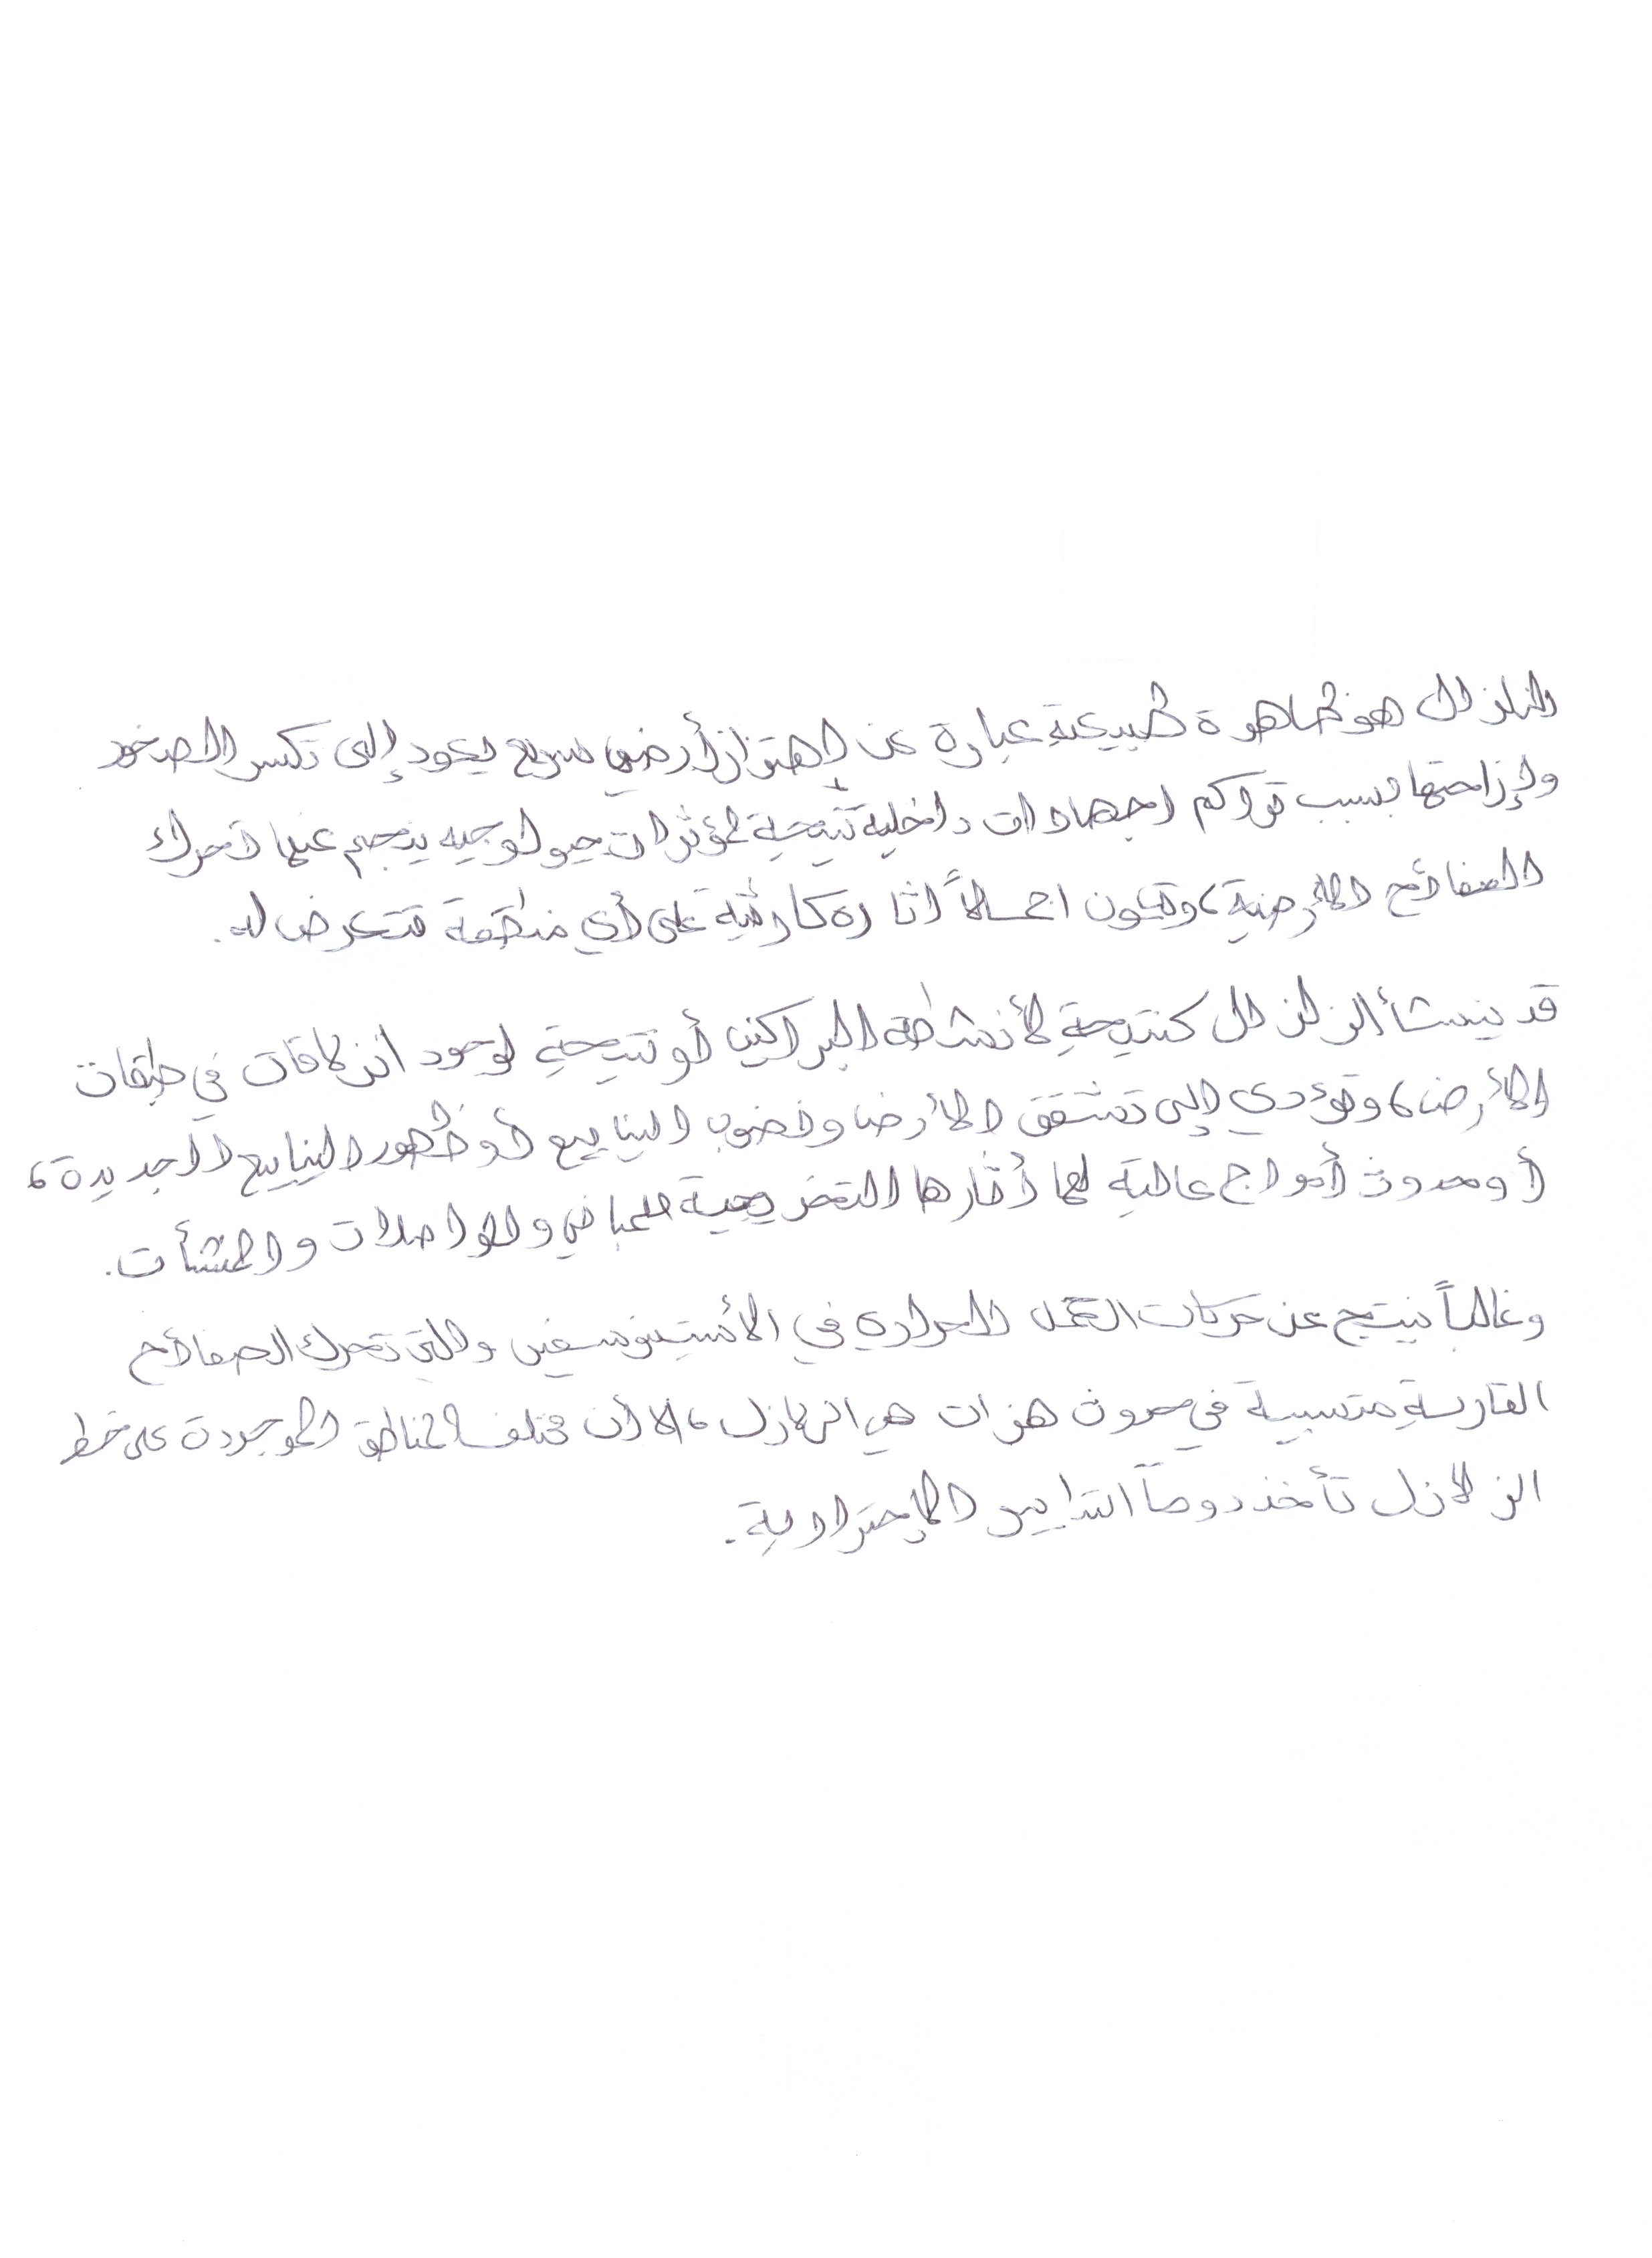 الزلزال هو ظاهرة طبيعية عبارة عن إهتزاز أرضي سريع يعود إلى تكسر الصخور
وإزاحتها بسبب تراكم اجهادات داخلية نتيجة لمؤثرات جيولوجيه ينجم عنها تحرك
الصفائح الأرضية، وتكون اجمالاً اثاره كارثية على أي منطقة تتعرض له.
قد ينشأ الزلزال كنتيجة لأنشطة البراكين أو نتيجة لوجود انزلاقات في طبقات
الأرض، وتؤدي إلى تشقق الأرض ونضوب الينابيع أو ظهور الينابيع الجديدة،
أو حدوث أمواج عالية لها أثارها التخريبية للمباني والمواصلات والمنشأت.
وغالباً ينتج عن حركات الحمل الحراري في الأستينوسفير والتي تحرك الصفائح
القارية متسببة في حدوث هزات هي الزلازل، الا أن مختلف المناطق الموجودة على خط
الزلازل تأخذ دوماً التدابير الإحترازية.